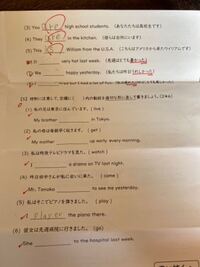 (3) You ( are ) high school students. (あなたたちは高校生です)
(4) They ( are ) in the kitchen. (彼らは台所にいます)
(5) This ( is ) William from the U.S.A. (こちらはアメリカから来たウイリアムです)
It very hot last week. (先週はとても暑かった)
We happy yesterday. (私たちは昨日うれしかった)
(live)
My brother in Tokyo.
(2) 私の母は毎朝早く起きます。 (get)
My mother up early every morning.
(3) 私は昨晩テレビドラマを見た。 (watch)
I a drama on TV last night.
(4) 昨日田中さんが私に会いに来た。 (come)
Mr. Tanaka to see me yesterday.
(5) 私はそこでピアノを弾きました。 (play)
I played the piano there.
(6) 彼女は先週病院に行きました。 (go)
She to the hospital last week.